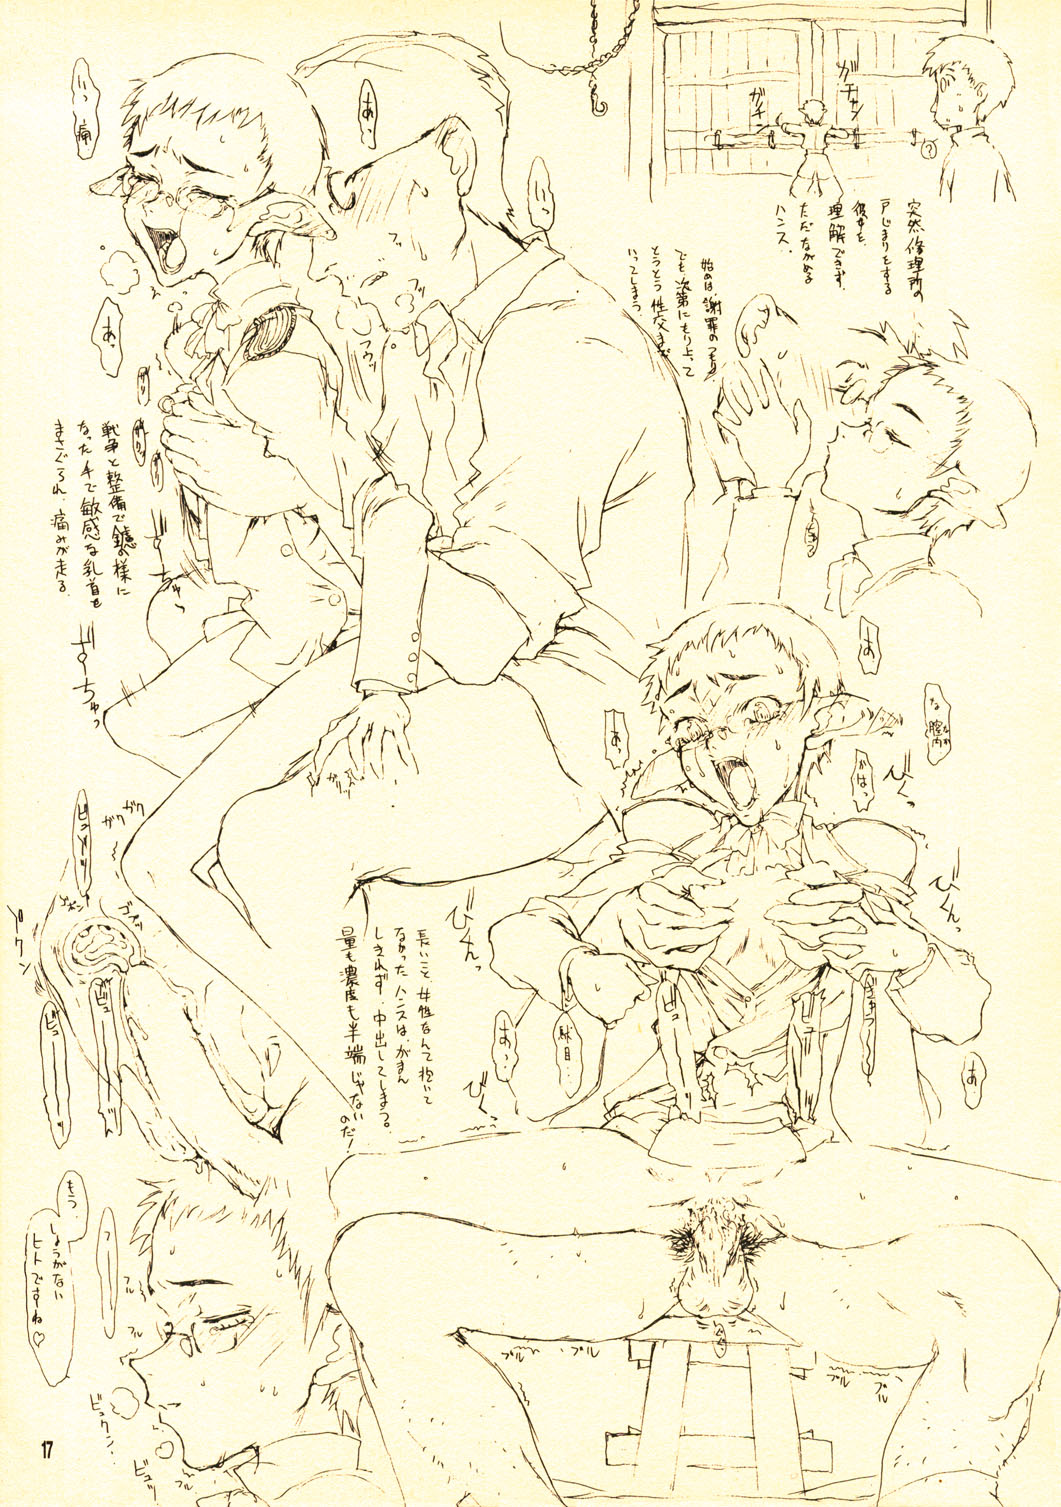 ガチャン
ガチン
?
突然修理所の
戸じまりをする
彼女を
理解できず、
ただながめる
ハンス、
始めは、謝罪のつもり
でも、次第にもり上って
とうとう性交まで
いってしまう、
あっ
いっ
いっ
痛
あっ
フッ
フウッ
戦争と整備で鑢の様に
なった手で敏感な乳首を
まさぐられ、痛みが走る、
ずちゅっ
ずちゅっ
ガリッ
あ
な 膣内
かはっ
びくっ
あっ
びくんっ
びくんっ
ガクガク
ピクン
長いこと女性なんて抱いて
なかったハンスは、がまん
しきれず、中出ししてしまう。
量も濃度も半端じゃない
のだ!
ビュ
ビュ
ビュ
ビュ
駄目…
あっ…
びくっ
あ…
もう、
しょうがない
ヒトですね♡
フー
フル
フル
プル
プル
プル
プル
ビュクン…
ビュッ
フル
17